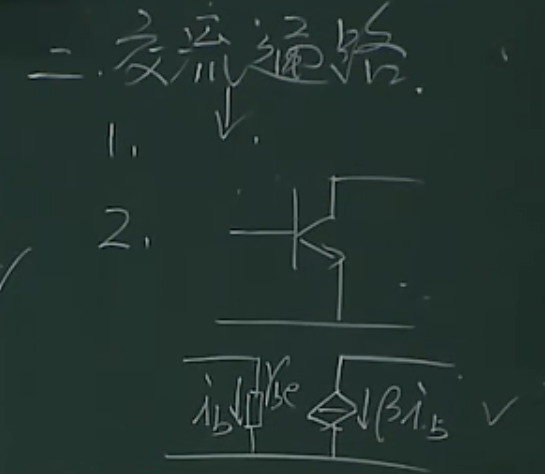 二.交流通路.
1.
2.
ib rbe βib